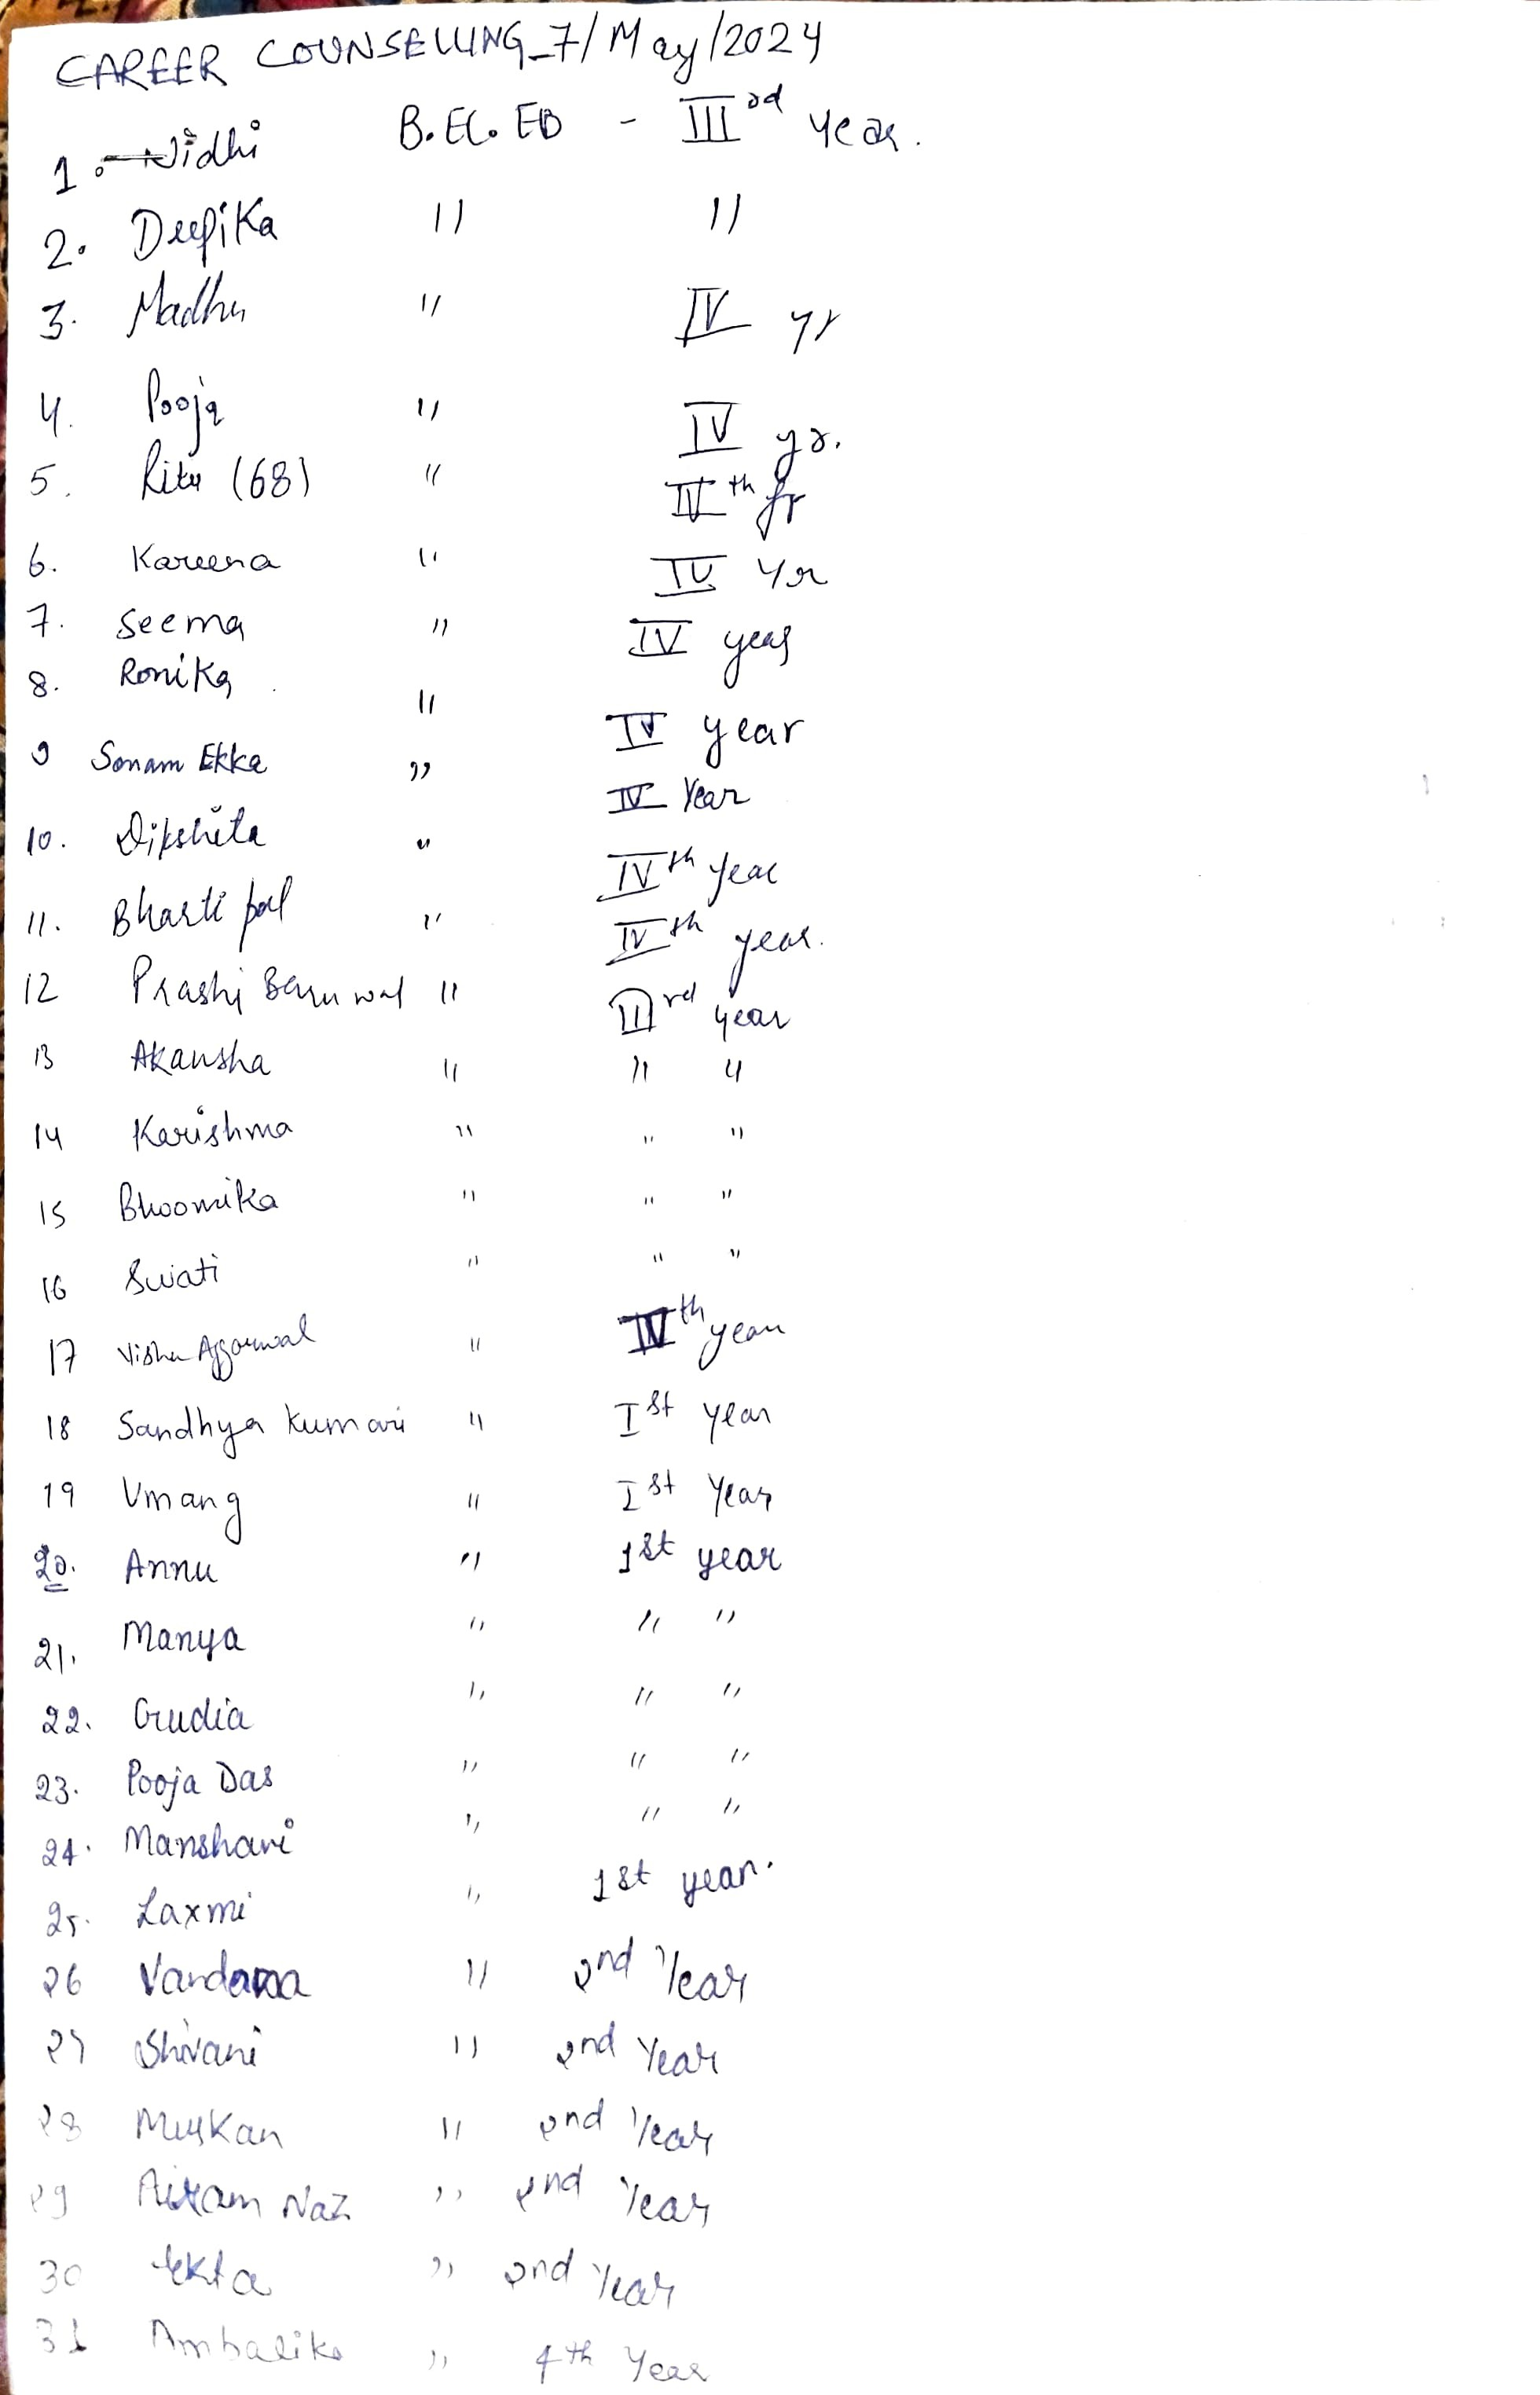 CAREER COUNSELLING_7/May/2024
1. Nidhi B.EL.ED - IIIrd year.
2. Deepika " "
3. Madhu " IV yr
4. Pooja " IV yr.
5. Ritu (68) " IVth yr
6. Kareena " IV yr
7. Seema " IV year
8. Ronika " IV year
9 Sonam Ekka " IV Year
10. Dikshita " IVth year
11. Bharti pal " IVth year.
12 Prashi Barnwal " IIIrd year
13 Akansha " " "
14 Karishma " " "
15 Bhoomika " " "
16 Swati " " "
17 Visha Aggarwal " IVth year
18 Sandhya Kumari " Ist year
19 Umang " Ist Year
20. Annu " 1st year
21. Manya " " "
22. Gudia " " "
23. Pooja Das " " "
24. Manshavi " " "
25. Laxmi " 1st year.
26 Vandana " 2nd Year
27 Shivani " 2nd Year
28 Muskan " 2nd Year
29 Naz " 2nd Year
30 Ekta " 2nd Year
31 Ambalika " 4th Year